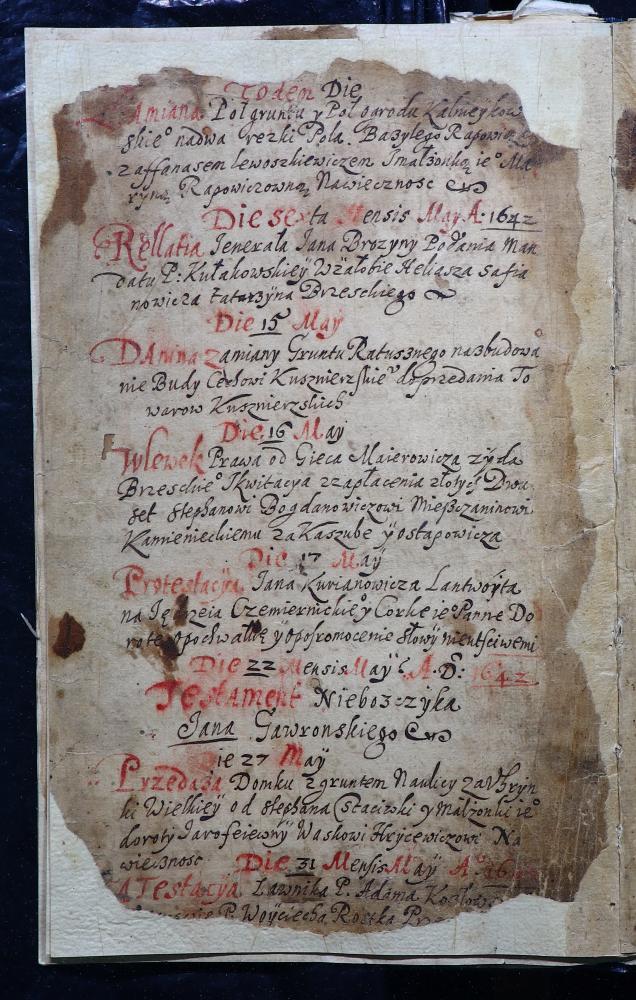 Eodem Die
Zamiana Poł gruntu y Poł ogrodu Kalmeykow
skie° nadwa rezki Pola. Bazylego Rapowi
z affanasem lewoszkiewiczem Imałżonką ie° Ma
ryną Rapowiczowną Nawieczność
Die sexta Mensis May A: 1642
Rellatia Jenerała Jana Brozyny Podania Man
datu P: Kułakowskiey Wżałobie Heliasza Safia
nowicza tatarzyna Brzeskiego
Die 15 May
Danina zamiany Gruntu Ratusznego nazbudowa
nie Budy Cechowi Kusznierzskie° dosprzedania To
warow Kusznierzskich
Die 16 May
Wlewek Prawa od Gieca Maierowicza żyda
Brzeskie° Ikwitacya zzapłacenia złotych Dwu
set Stephanowi Bogdanowiczowi Mieszczaninowi
Kamienieckiemu za Kaszube y ostapowicza
Die 17 May
Protestacya Jana Kurianowicza Lantwoyta
na Czemiernickie°y Corke ie° Panne Do
rote opochwałkę y oposromocenie słowy nieutsciwemi
Die 22 Mensis May A. D: 1642
Testament Nieboszczyka
Jana Gawronskiego
ie 27 May
Przedaża Domku z gruntem Naulicy za Uhryn
ki Wielkiey od Stephana y Małżonki ie°
doroty Jarofeiewny Waskowi Hrycewiczowi Na
wieczność Die 31 Mensis May A° 16
ATestacya Ławnika P. Adama
P. Woyciecha Rostka